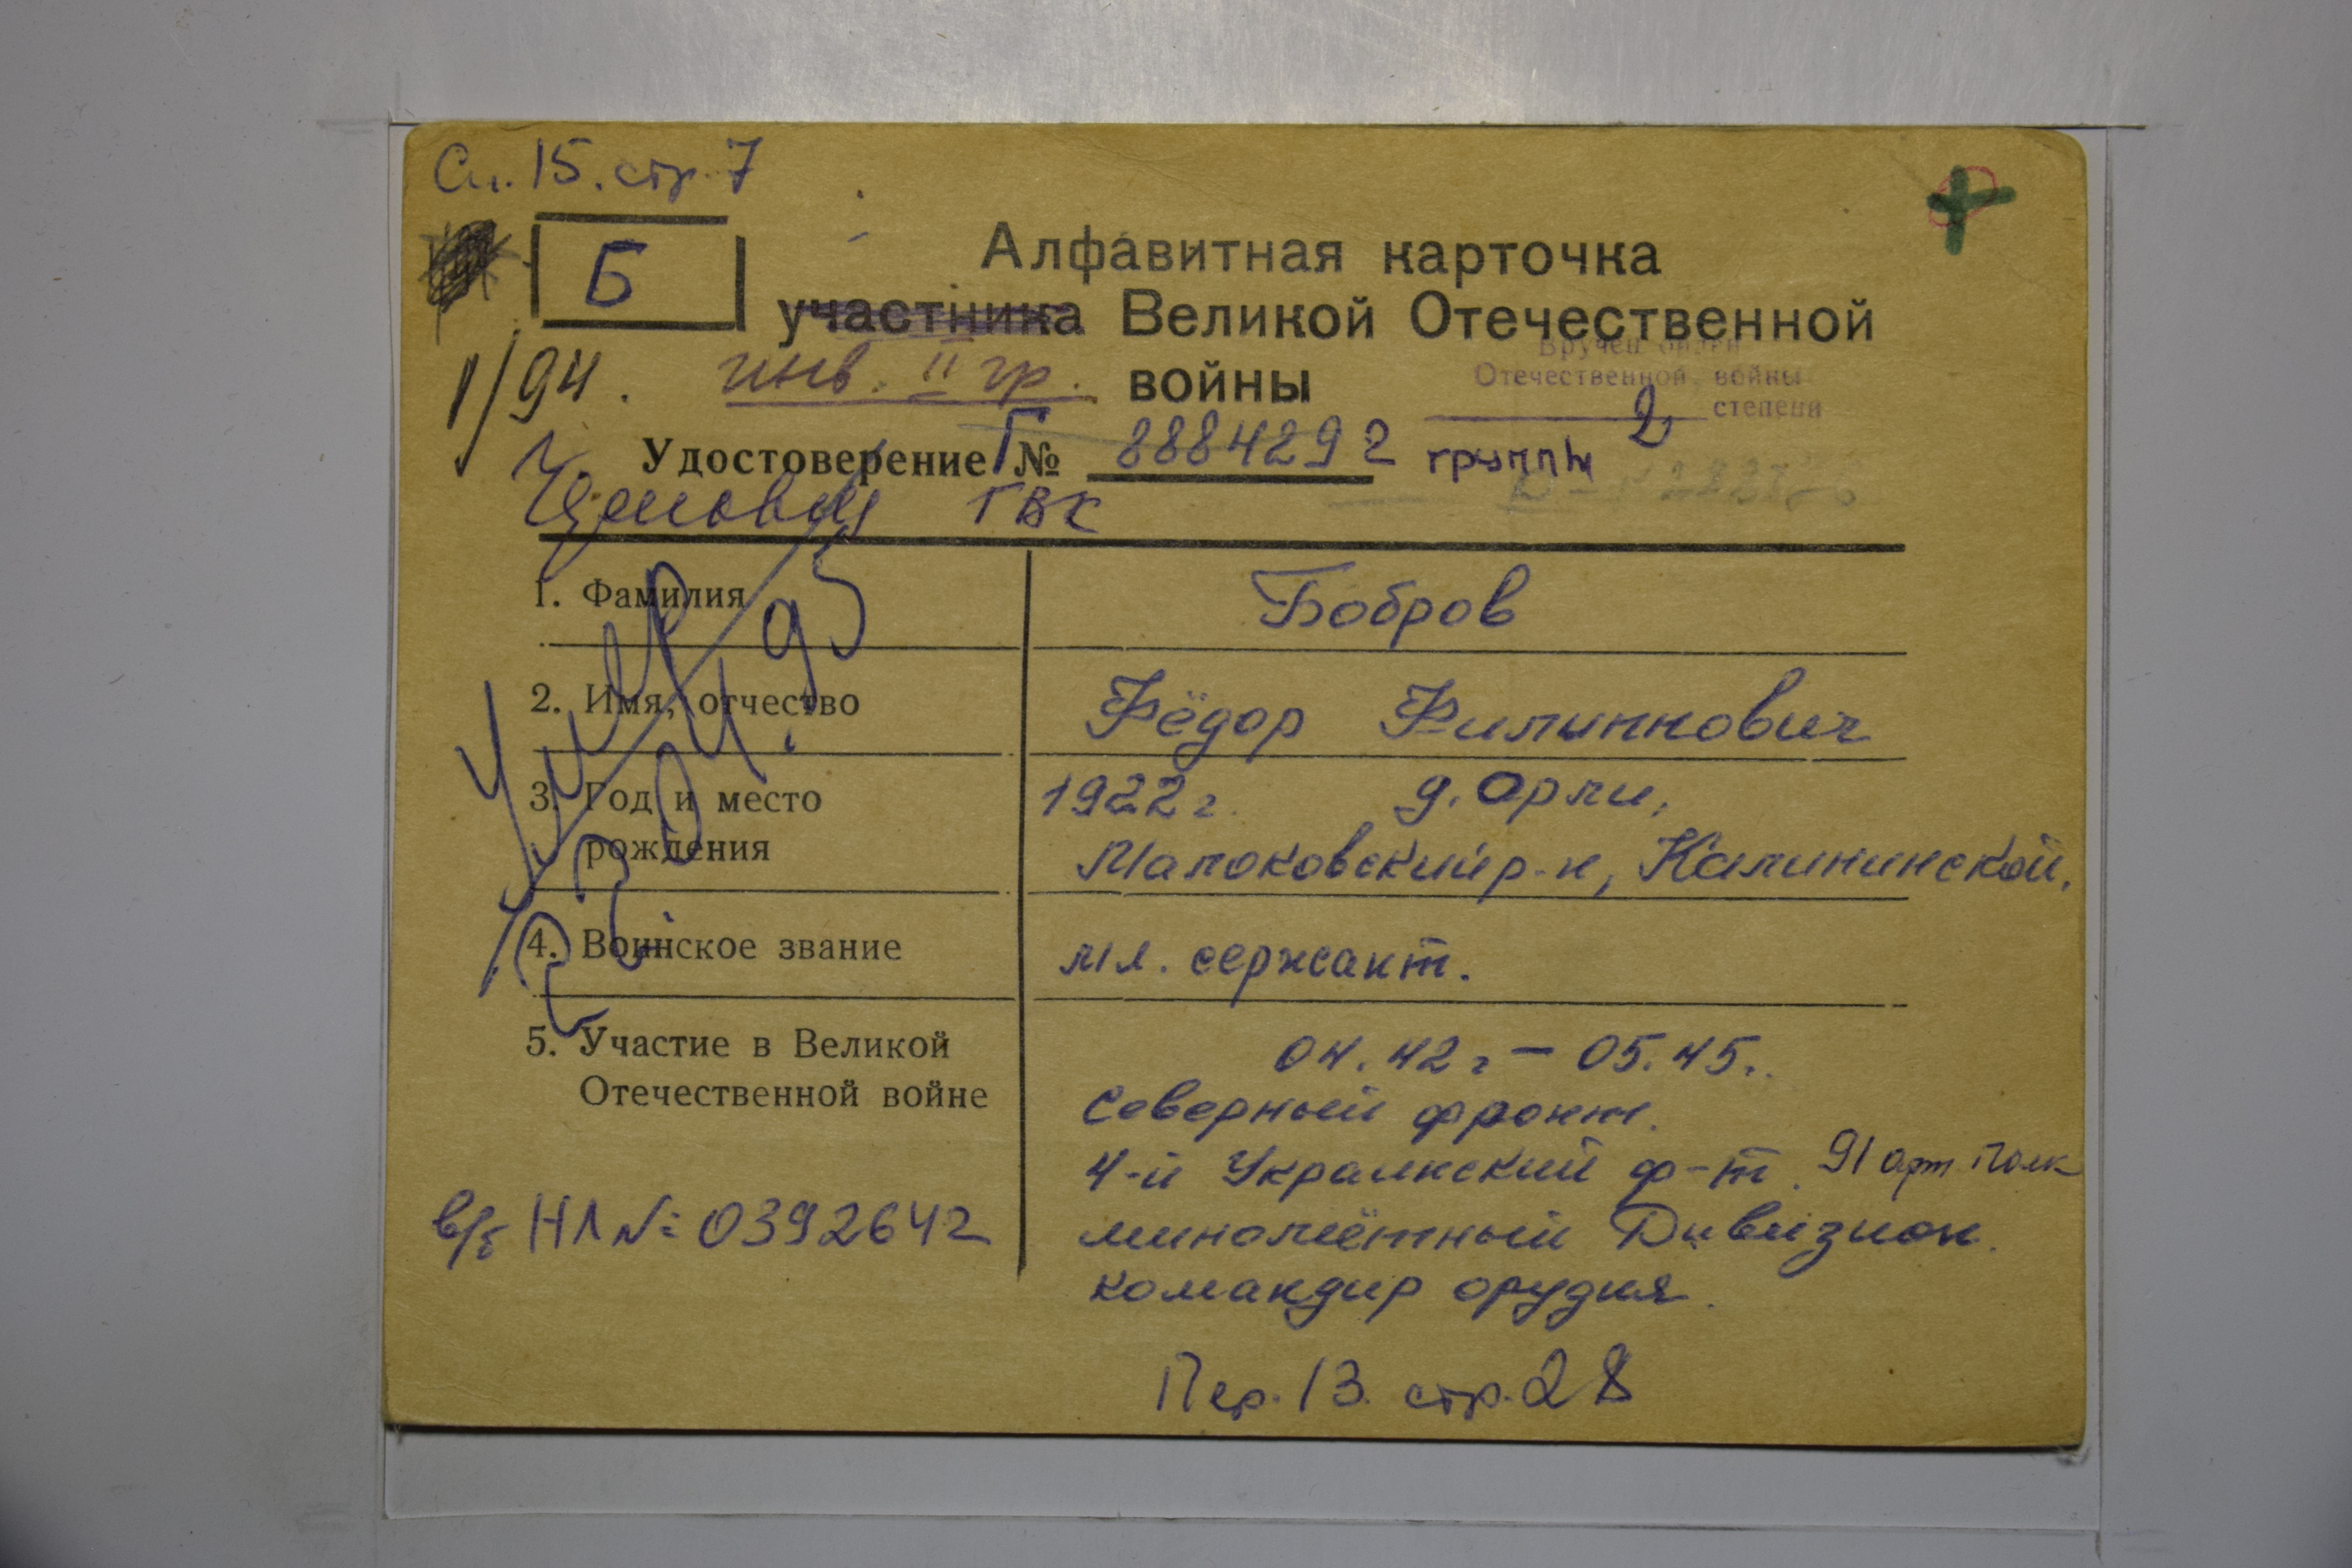 Сп. 15. стр. 7
Б
Алфавитная карточка
участника Великой Отечественной
1/94. инв. II гр. войны
Вручен орден
Отечественной войны
2 степени
Удостоверение Г № 8884292 группы
ГВК
1. Фамилия Бобров
2. Имя, отчество Фёдор Филиппович
3. Год и место рождения 1922 г. д. Орли,
Молоковский р-н, Калининской.
4. Воинское звание мл. сержант.
5. Участие в Великой Отечественной войне
04.42 г - 05.45 г.
Северный фронт.
4-й Украинский ф-т. 91 арт полк
миномётный Дивизион.
командир орудия.
Умер
04.95
в/б НЛ № 0392642
Пер. 13. стр. 28